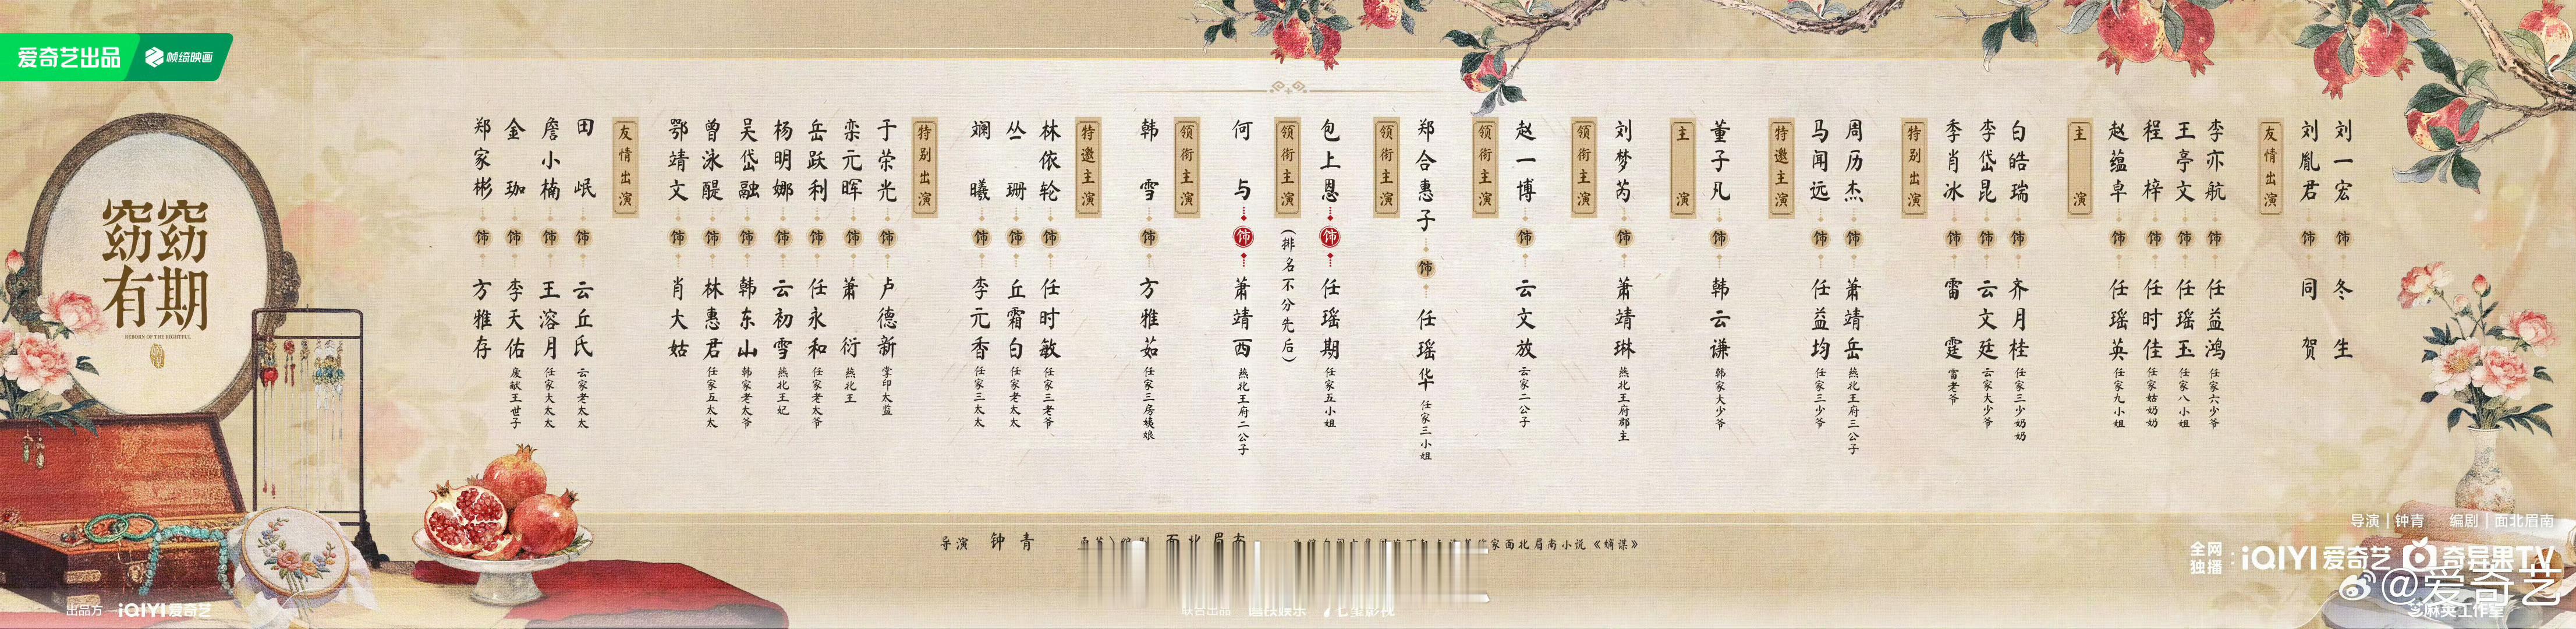 爱奇艺出品 帧绮映画
窈窕有期
REBORN OF THE RIGHTFUL
郑家彬 饰 方雅存
金珈 饰 李天佑 废献王世子
詹小楠 饰 王溶月 任家大太太
田岷 饰 云丘氏 云家老太太
友情出演
鄂靖文 饰 肖大姑
曾泳醍 饰 林惠君 任家五太太
吴岱融 饰 韩东山 韩家老太爷
杨明娜 饰 云初雪 燕北王妃
岳跃利 饰 任永和 任家老太爷
栾元晖 饰 萧衍 燕北王
于荣光 饰 卢德新 掌印太监
特别出演
斓曦 饰 李元香 任家三太太
丛珊 饰 丘霜白 任家老太太
林依轮 饰 任时敏 任家三老爷
特邀主演
韩雪 饰 方雅茹 任家三房姨娘
领衔主演
何与 饰 萧靖西 燕北王府二公子
领衔主演
(排名不分先后)
包上恩 饰 任瑶期 任家五小姐
领衔主演
郑合惠子 饰 任瑶华 任家三小姐
领衔主演
赵一博 饰 云文放 云家二公子
领衔主演
刘梦芮 饰 萧靖琳 燕北王府郡主
主演
董子凡 饰 韩云谦 韩家大少爷
特邀主演
马闻远 饰 任益均 任家三少爷
周历杰 饰 萧靖岳 燕北王府三公子
特别出演
季肖冰 饰 雷霆 雷老爷
李岱昆 饰 云文廷 云家大少爷
白皓瑞 饰 齐月桂 任家三少奶奶
主演
赵蕴卓 饰 任瑶英 任家九小姐
程梓 饰 任时佳 任家姑奶奶
王亭文 饰 任瑶玉 任家八小姐
李亦航 饰 任益鸿 任家六少爷
友情出演
刘胤君 饰 同贺
刘一宏 饰 冬生
导演 钟青 面北眉南 家面北眉南小说《嫡谋》
出品方 iQIYI爱奇艺
导演 | 钟青 编剧 | 面北眉南
全网独播 : iQIYI爱奇艺 奇异果TV
@爱奇艺